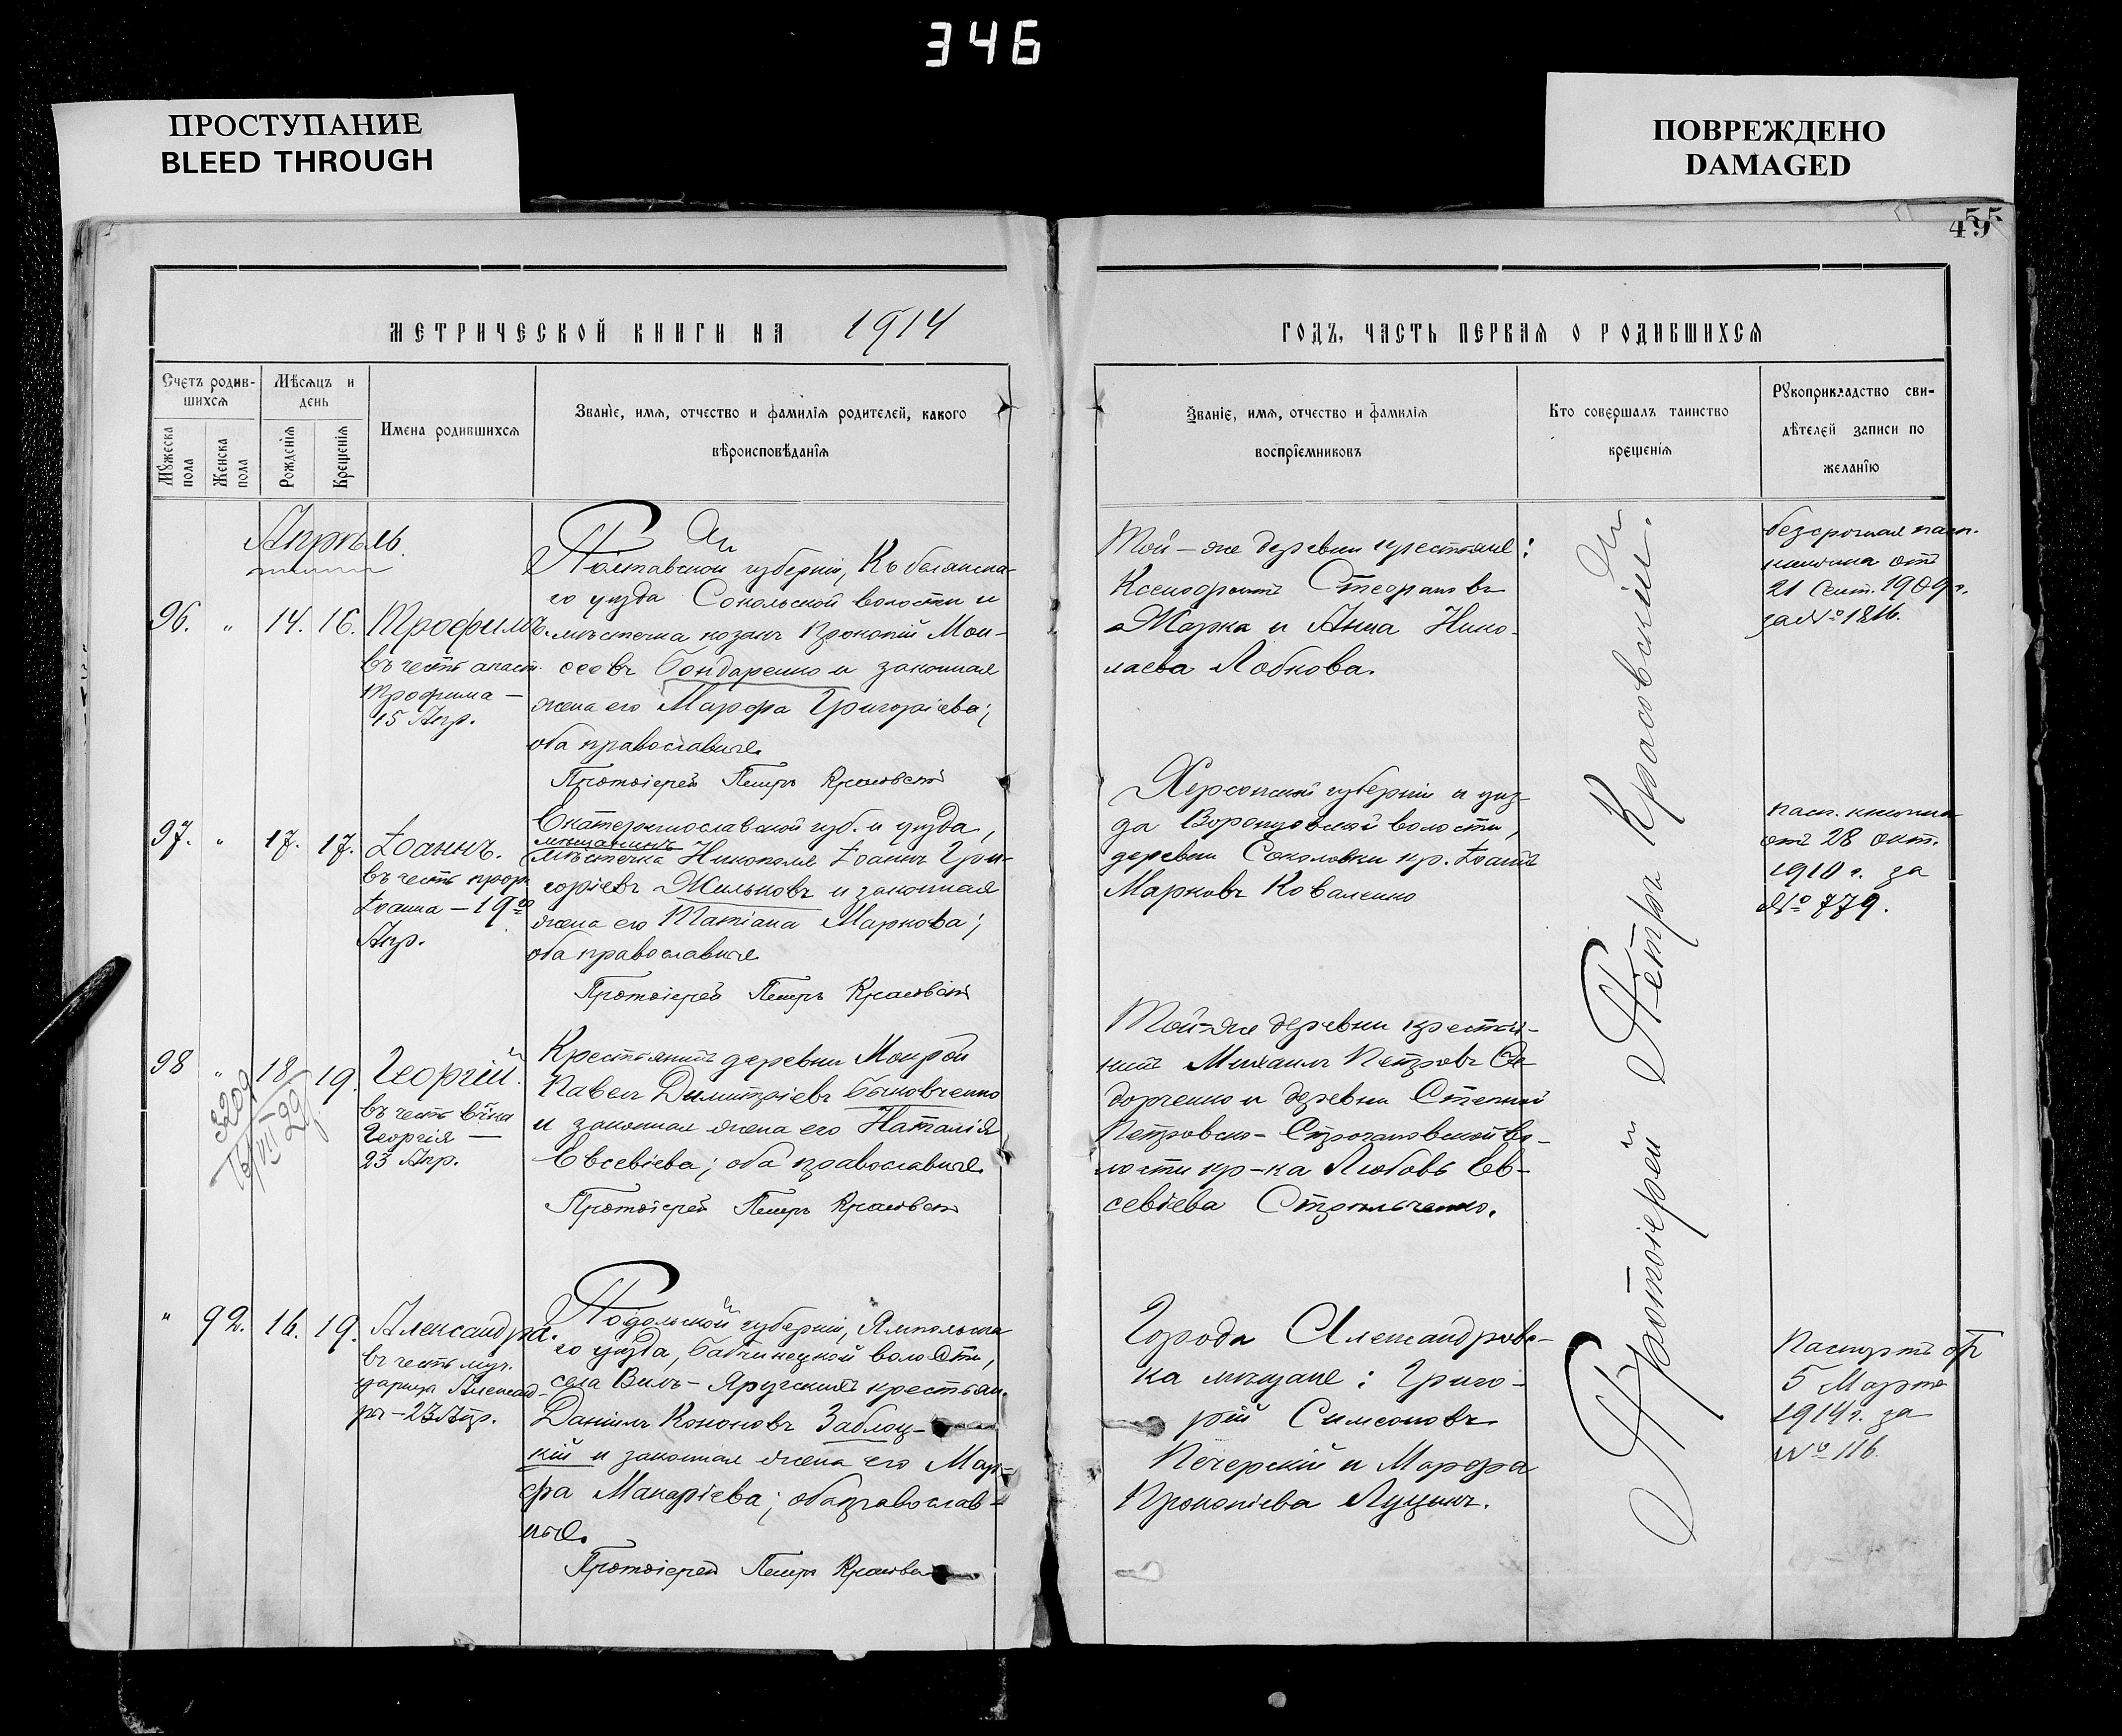 346
ПРОСТУПАНИЕ
BLEED THROUGH
ПОВРЕЖДЕНО
DAMAGED
55
49
МЕТРИЧЕСКОЙ КНИГИ НА 1914
Счетъ родив-
шихся
Мѣсяцъ и
день
Имена родившихся
Званіе, имя, отчество и фамилія родителей, какого
вѣроисповѣданія
Мужеска
пола
Женска
пола
Рожденія
Крещенія
Апрѣль.
96. " 14. 16. Трофимъ.
въ честь апост.
Трофима —
15 Апр.
Полтавской губерніи, Кобелякска-
го уѣзда Сокольской волости и
мѣстечка козакъ Прокопій Мои-
сеевъ Бондаренко и законная
жена его Марфа Григоріева;
оба православные.
Протоіерей Петръ Красовскій
97. " 17. 17. Іоаннъ.
въ честь прор.
Іоанна — 19го
Апр.
Екатеринославской губ. и уѣзда,
мѣщанинъ
мѣстечка Никополя Іоаннъ Гри-
горіевъ Жильковъ и законная
жена его Татіана Маркова;
оба православные
Протоіерей Петръ Красовскій
98 " 18 19. Георгій.
3209
16/VII 29 г.
въ честь в-м-ка
Георгія —
23 Апр.
Крестьянинъ деревни
Павелъ Димитріевъ Быковченко
и законная жена его Наталія
Евсевіева; оба православные.
Протоіерей Петръ Красовскій
" 92. 16. 19. Александра.
въ честь муч.
царицы Александ-
ры — 23 Апр.
Подольской губерніи, Ямпольска
го уѣзда, Бабчинецкой волости,
села Виль-Яругскихъ крестьян.
Даніилъ Кононовъ Заблоц-
кій и законная жена его Мар-
фа Макаріева; оба православ-
ные.
Протоіерей Петръ Красовскій
ГОДЪ, ЧАСТЬ ПЕРВАЯ О РОДИВШИХСЯ
Званіе, имя, отчество и фамилія
воспріемниковъ
Кто совершалъ таинство
крещенія
Рукоприкладство сви-
дѣтелей записи по
желанію
Той-же деревни крестьяне:
Ксенофонтъ Стефановъ
Марка и Анна Нико-
лаева Лобкова.
безсрочная пасп.
книжка отъ
21 Сент. 1909 г.
за № 1216.
Херсонской губерніи и уѣз-
да Воронцовской волости,
деревни Соколовки кр. Іоаннъ
Марковъ Коваленко
пасп. книжка
отъ 28 окт.
1910 г. за
№ 779.
Той-же деревни крестья-
нинъ Михаилъ Петровъ Си-
дорченко и деревни Степной
Петровско-Строгановской во-
лости кр-ка Любовь Ев-
севіева Стрельченко.
Города Александровс-
ка мѣщане: Григо-
рій Симеоновъ
Печерскій и Марфа
Прокопіева Луцикъ.
Паспортъ отъ
5 Марта
1914 г. за
№ 116
Протоіерей Петръ Красовскій.